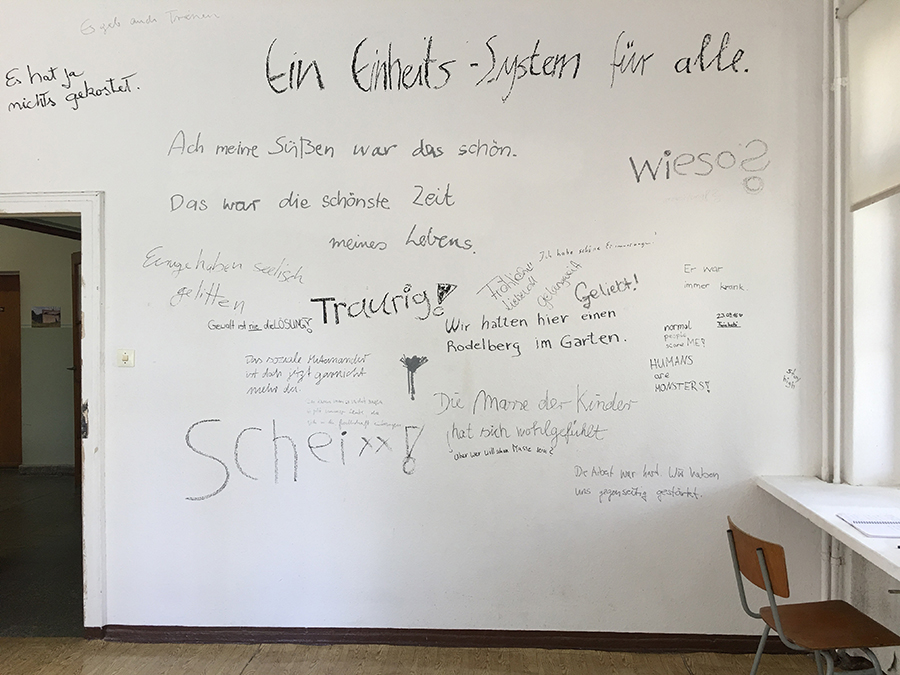 Es gab auch Tränen
Es hat ja
nichts gekostet.
Ein Einheits-System für alle.
Ach meine Süßen war das schön.
Wieso?
Das war die schönste Zeit
meines Lebens.
Einige haben seelisch
gelitten
Gewalt ist nie die LÖSUNG!
Traurig!
Fröhlich
Liebevoll
Ich habe schöne Erinnerungen!
Geliebt!
Er war
immer krank.
Wir hatten hier einen
Rodelberg im Garten.
normal
people
scare ME?
HUMANS
are
MONSTERS!
Das soziale Miteinander
ist doch jetzt garnicht
mehr da.
Scheixx!
Die Masse der Kinder
hat sich wohlgefühlt
aber wer will schon Masse sein?
Die Arbeit war hart. Wir haben
uns gegenseitig gestärkt.